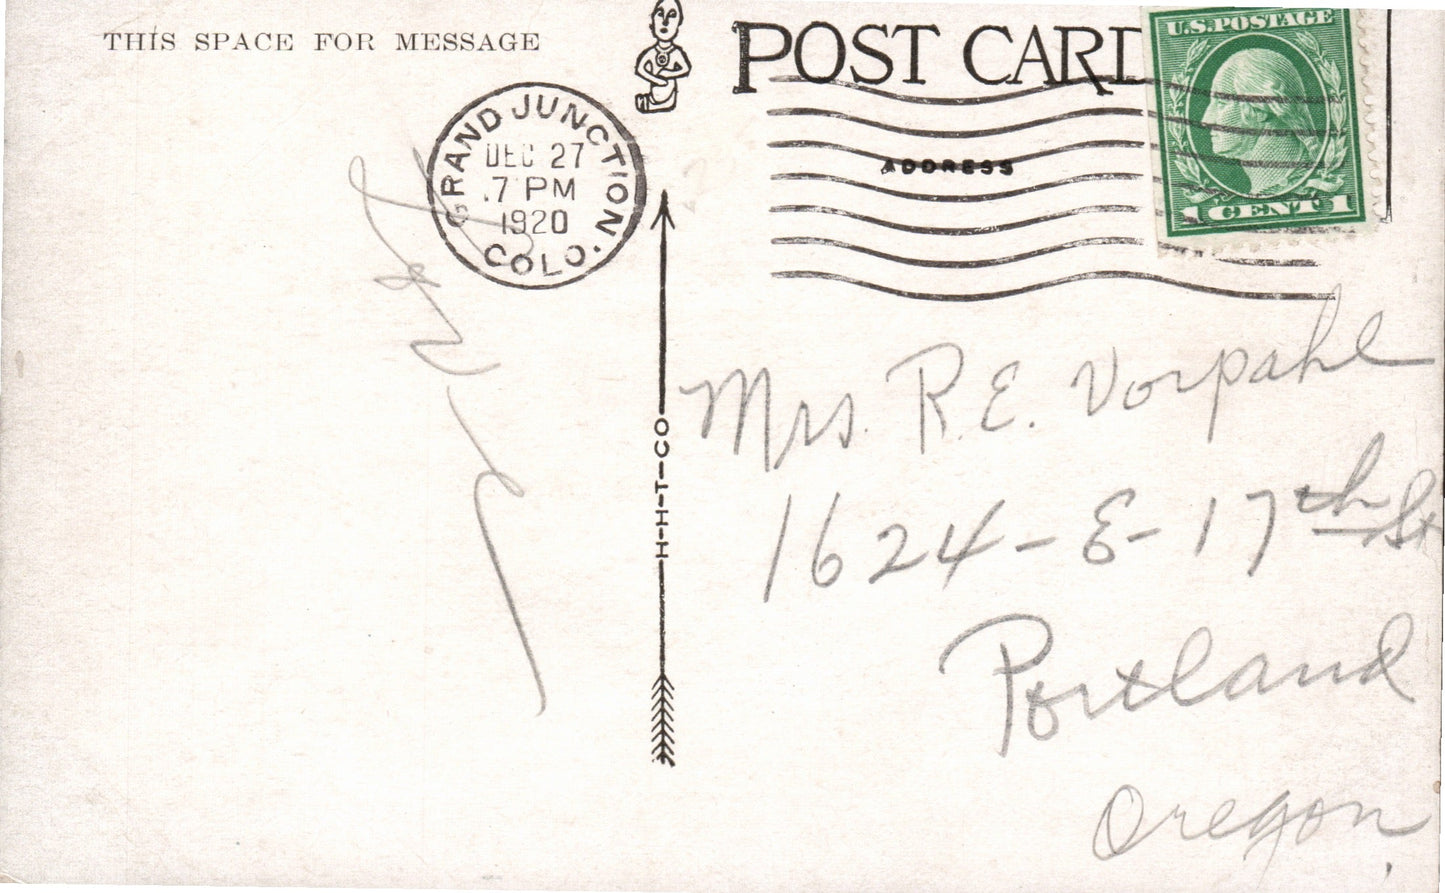 THIS SPACE FOR MESSAGE
POST CARD
U.S. POSTAGE
1 CENT 1
GRAND JUNCTION
DEC 27
7 PM
1920
COLO.
ADDRESS
H-H-T-CO
Mrs. R. E. Vorpahl
1624 - E - 17th St
Portland
Oregon.